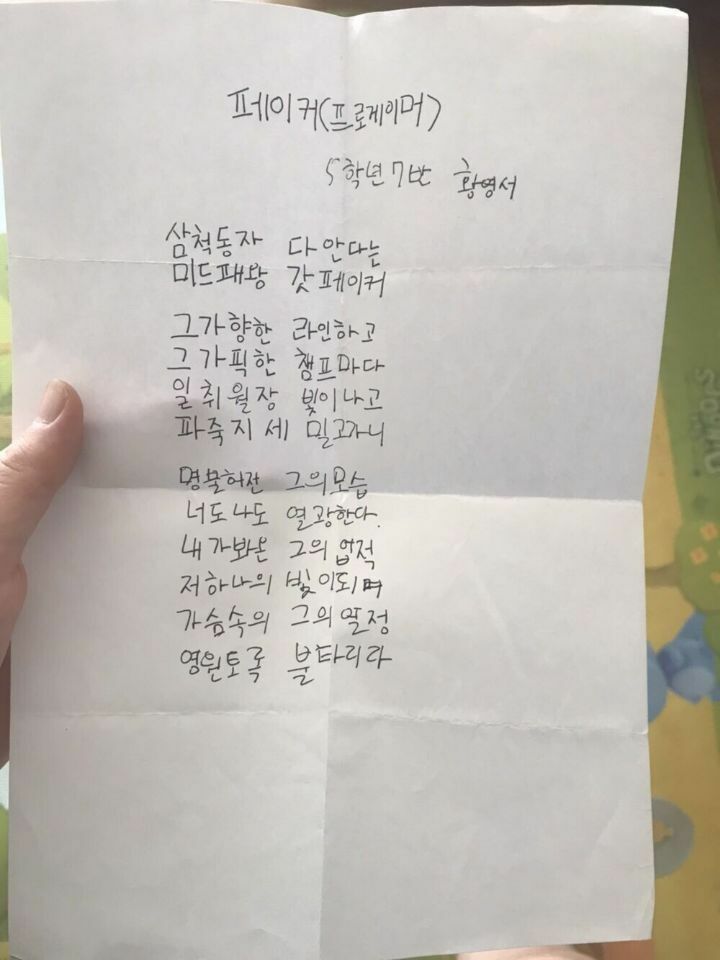 페이커(프로게이머)
5학년 7반 황영서
삼척동자 다 안다는
미드패왕 갓 페이커
그가향한 라인하고
그가픽한 챔프마다
일취월장 빛이나고
파죽지세 밀고가니
명불허전 그의모습
너도나도 열광한다.
내가봐온 그의 업적
저하나의 빛이되며
가슴속의 그의 열정
영원토록 불타리라